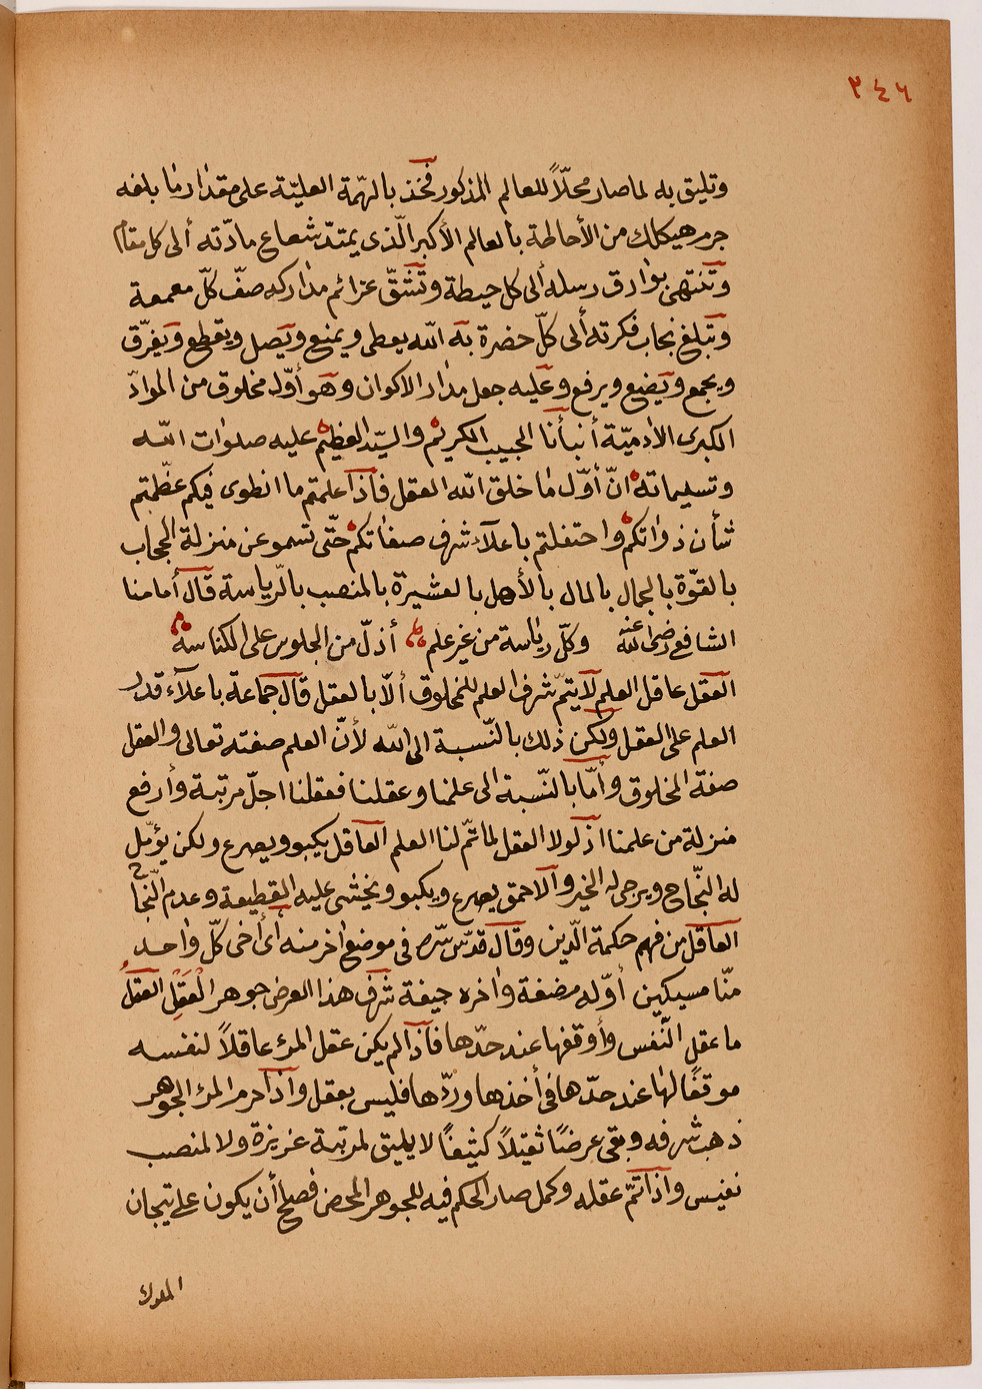 ٣٤٦
وتليق به لما صار محلّاً للعالم المذكور فخذ بالهمّة العليّة على مقدار ما بلغه
جرم هيكلك من الأحاطة بالعالم الأكبر الّذى يمتدّ شعاع مادّته ألى كل مقام
وتنتهى بوارق رسله ألى كل حيطة وتشقّ عزائم مداركه صفّ كلّ معمعة
وتبلغ نجاب فكرته ألى كلّ حضرة به الله يعطى ويمنع ويصل ويقطع ويفرّق
ويجمع ويضيع ويرفع وعليه جعل مدار الاكوان وهو أوّل مخلوق من الموادّ
الكبرى الآدميّة أنبأنا الحبيب الكريم والسيّد العظيم عليه صلوات الله
وتسليماته انّ أوّل ما خلق الله العقل فاذا علمتم ما انطوى فيكم عظّمتم
شأن ذواتكم واحتفلتم باعلآء شرف صفاتكم حتّى تسمو عن منزلة الحجاب
بالقوّة بالجمال بالمال بالأهل بالعشيرة بالمنصب بالرّياسة قال أمامنا
الشافعى رضى الله عنه وكلّ رياسة من غير علم أذلّ من الجلوس على الكناسة
العقل عاقل العلم لا يتمّ شرف العلم للمخلوق ألّا بالعقل قال جماعة باعلآء قدر
العلم على العقل ولكن ذلك بالنّسبة الى الله لأنّ العلم صفته تعالى والعقل
صفة المخلوق وأمّا بالنّسبة الى علمنا وعقلنا فعقلنا اجلّ مرتبة وأرفع
منزلة من علمنا اذ لولا العقل لما تمّ لنا العلم العاقل يكبو ويصرع ولكن يؤمّل
له النّجاح ويرجى له الخير والاحمق يصرع ويكبو ويخشى عليه القطيعة وعدم النّجاح
العاقل من فهم حكمة الدّين وقال قدّس سرّه فى موضع اخر منه أى أخى كلّ واحد
منّا مسيكين أوّله مضغة واخره جيفة شرف هذا العرض جوهر العقل العقل
ما عقل النّفس وأوقفها عند حدّها فاذا لم يكن عقل المرء عاقلاً لنفسه
موقفًا لها عند حدّها فى أخذها وردّها فليس بعقل واذا حرم المرء الجوهر
ذهب شرفه وبقى عرضًا ثقيلاً كثيفًا لا يليق لمرتبة عزيزة ولا لمنصب
نفيس واذا تمّ عقله وكمل صار الحكم فيه للجوهر المحض فصلح أن يكون على تيجان
الملوك